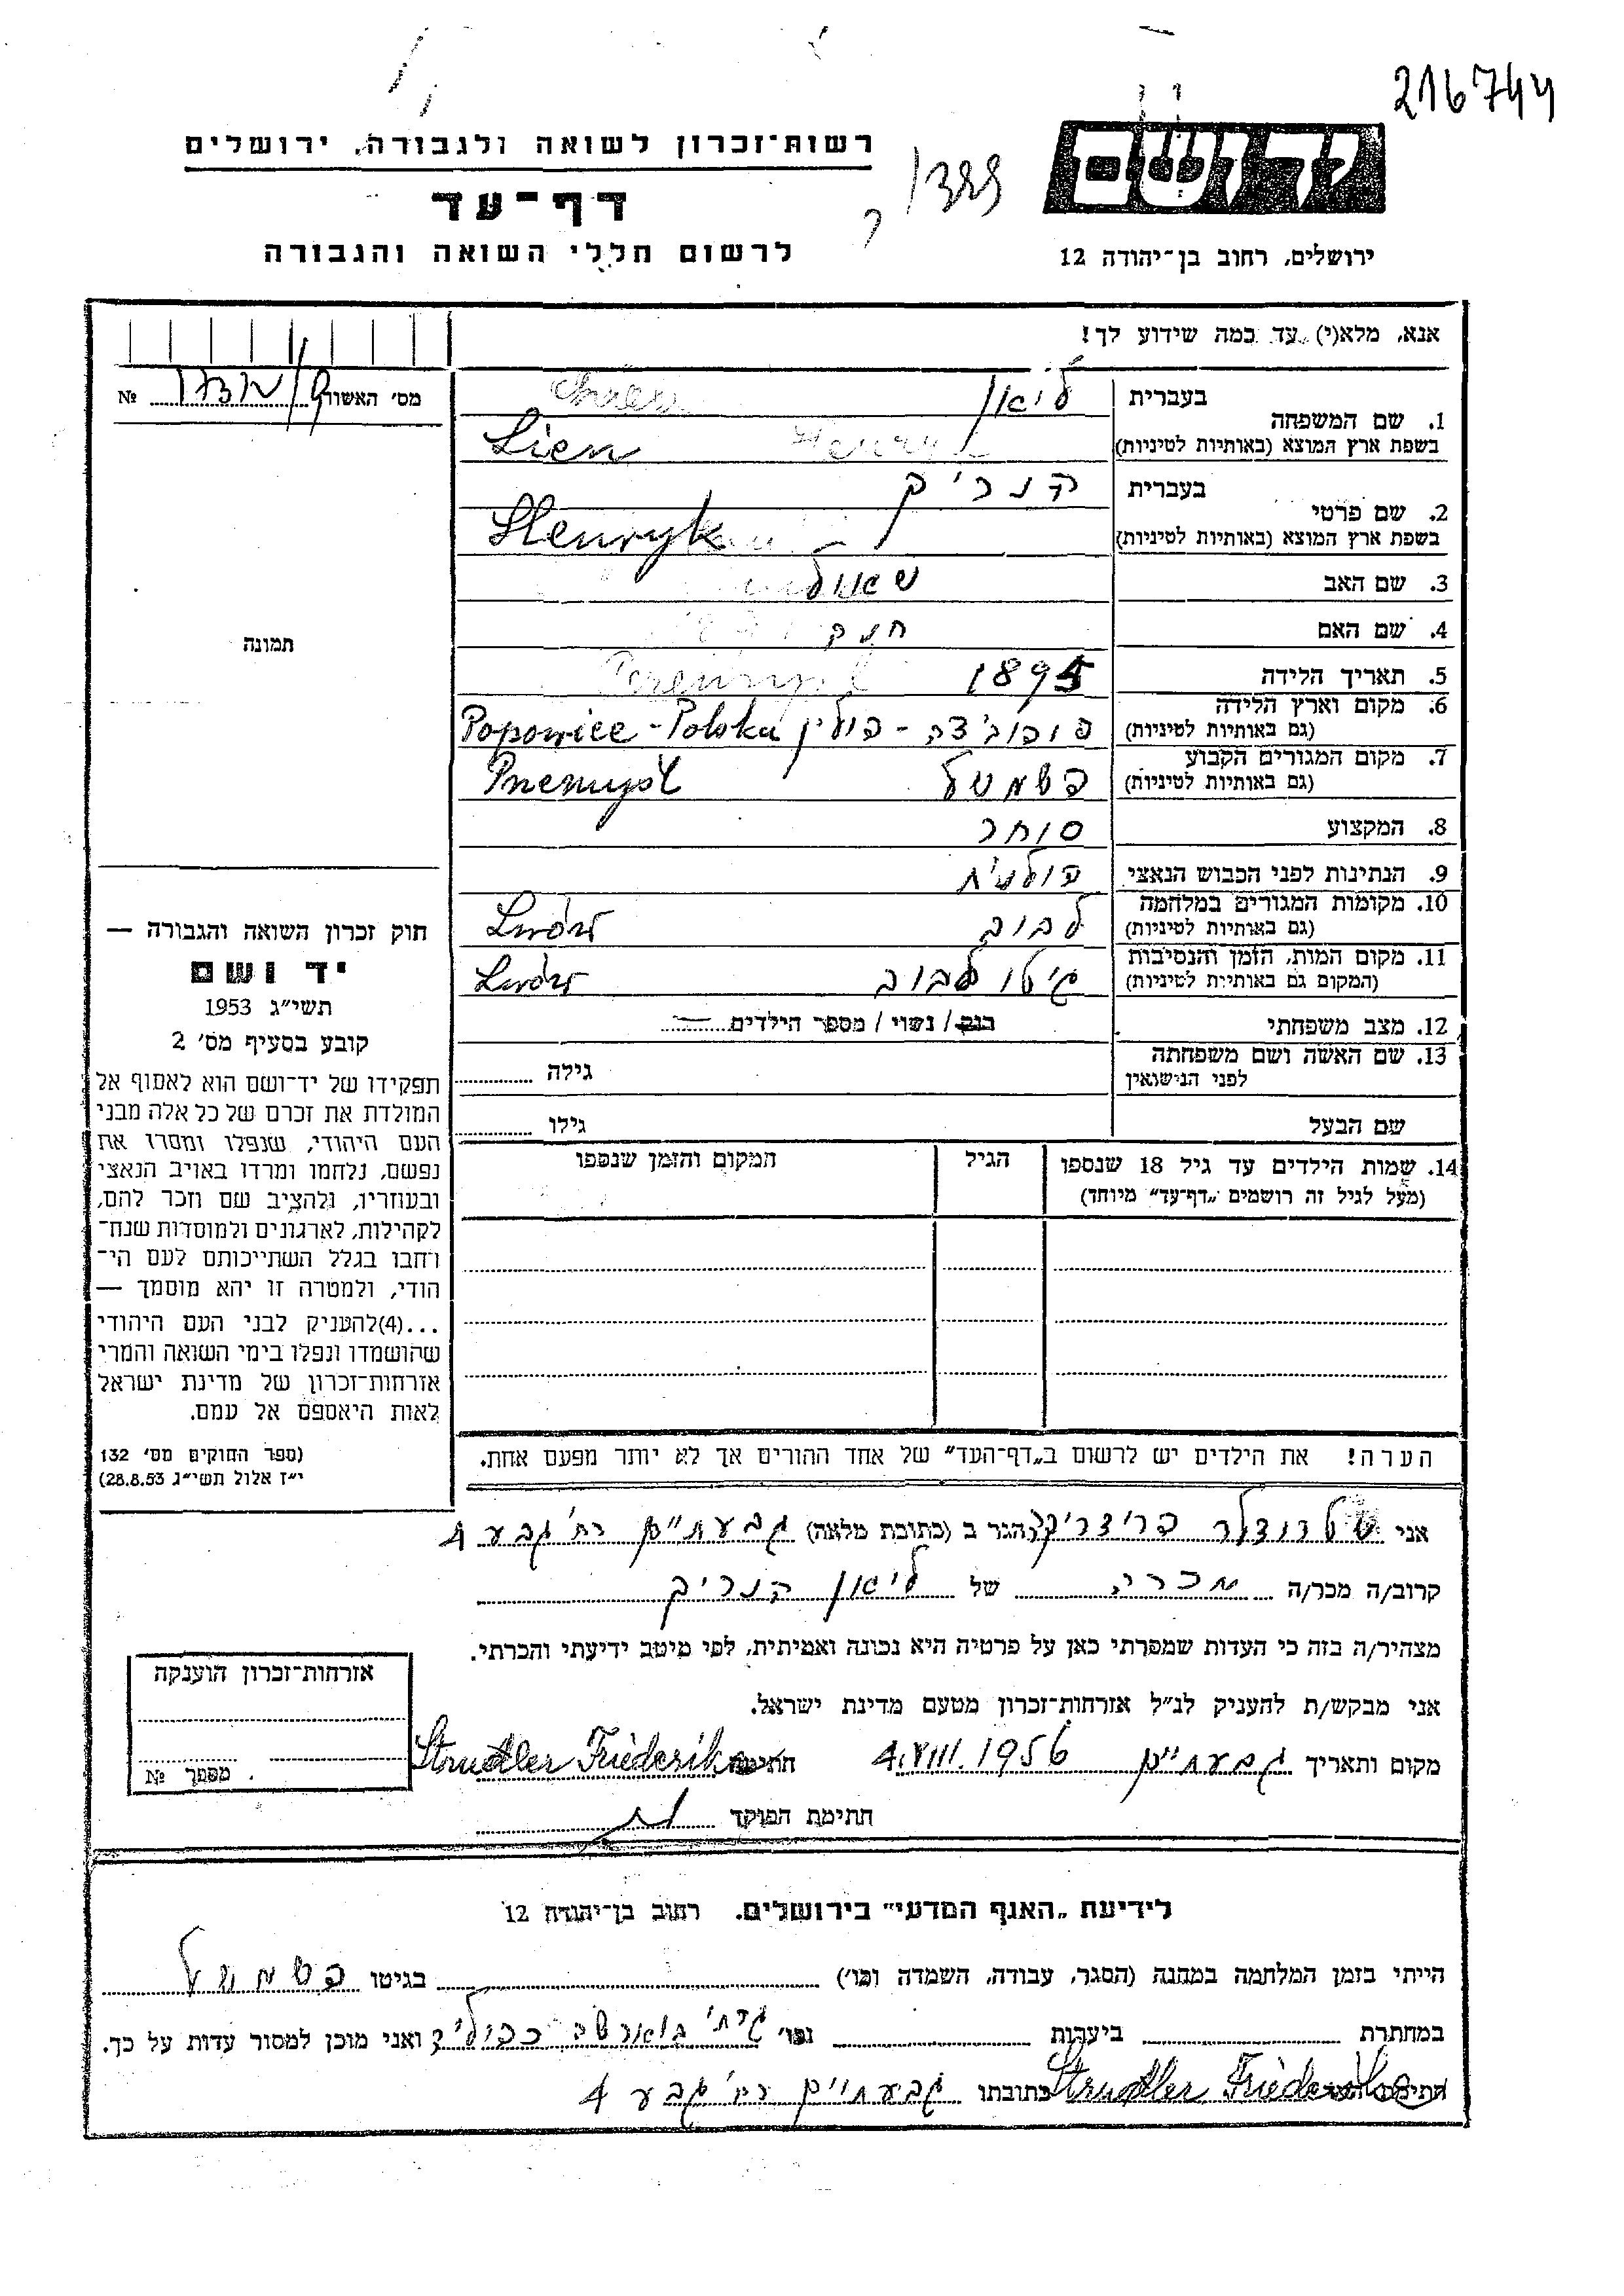 216744
רשות־זכרון לשואה ולגבורה, ירושלים
דף־עד
לרשום חללי השואה והגבורה
יד ושם
ירושלים, רחוב בן־יהודה 12
אנא, מלא(י) עד כמה שידוע לך!
מס׳ האשור № 
1. שם המשפחה
בעברית ליאן
בשפת ארץ המוצא (באותיות לטיניות) Lien
2. שם פרטי
בעברית הנריק
בשפת ארץ המוצא (באותיות לטיניות) Henryk
3. שם האב שאול
4. שם האם חנה
5. תאריך הלידה 1895
6. מקום וארץ הלידה
(גם באותיות לטיניות) פופוביצה - פולין Popowice - Polska
7. מקום המגורים הקבוע
(גם באותיות לטיניות) פשמישל Przemyśl
8. המקצוע סוחר
9. הנתינות לפני הכבוש הנאצי פולנית
10. מקומות המגורים במלחמה
(גם באותיות לטיניות) לבוב Lwów
11. מקום המות, הזמן והנסיבות
(המקום גם באותיות לטיניות) גיטו לבוב Lwów
12. מצב משפחתי רווק / נשוי / מספר הילדים —
13. שם האשה ושם משפחתה
לפני הנישואין גילה
שם הבעל גילו
14. שמות הילדים עד גיל 18 שנספו הגיל המקום והזמן שנספו
(מעל לגיל זה רושמים „דף־עד” מיוחד)
הערה! את הילדים יש לרשום ב„דף־העד” של אחד ההורים אך לא יותר מפעם אחת.
תמונה
חוק זכרון השואה והגבורה —
יד ושם
תשי״ג 1953
קובע בסעיף מס׳ 2
תפקידו של יד־ושם הוא לאסוף אל
המולדת את זכרם של כל אלה מבני
העם היהודי, שנפלו ומסרו את
נפשם, נלחמו ומרדו באויב הנאצי
ובעוזריו, ולהציב שם וזכר להם,
לקהילות, לארגונים ולמוסדות שנח־
רחבו בגלל השתייכותם לעם הי־
הודי, ולמטרה זו יהא מוסמך —
...(4)להעניק לבני העם היהודי
שהושמדו ונפלו בימי השואה והמרי
אזרחות־זכרון של מדינת ישראל
לאות היאספם אל עמם.
(ספר החוקים מס׳ 132
י״ז אלול תשי״ג 28.8.53)
אני שטרודלר פרידריקה הגר ב (כתובת מלאה) גבעתיים רח׳ גבע 4
קרוב/ה מכר/ה מכרה של ליאן הנריק
מצהיר/ה בזה כי העדות שמסרתי כאן על פרטיה היא נכונה ואמיתית, לפי מיטב ידיעתי והכרתי.
אני מבקש/ת להעניק לנ״ל אזרחות־זכרון מטעם מדינת ישראל.
מקום ותאריך גבעתיים 4.VIII.1956 חתימה Strudler Friederike
חתימת הפוקד
אזרחות־זכרון הוענקה
מספר №
לידיעת „האגף המדעי” בירושלים. רחוב בן־יהודה 12
הייתי בזמן המלחמה במחנה (הסגר, עבודה, השמדה וכו׳) בגיטו פשמישל
במחתרת ביערות וכו׳ ואני מוכן למסור עדות על כך.
Strudler Friederike כתובתו גבעתיים רח׳ גבע 4